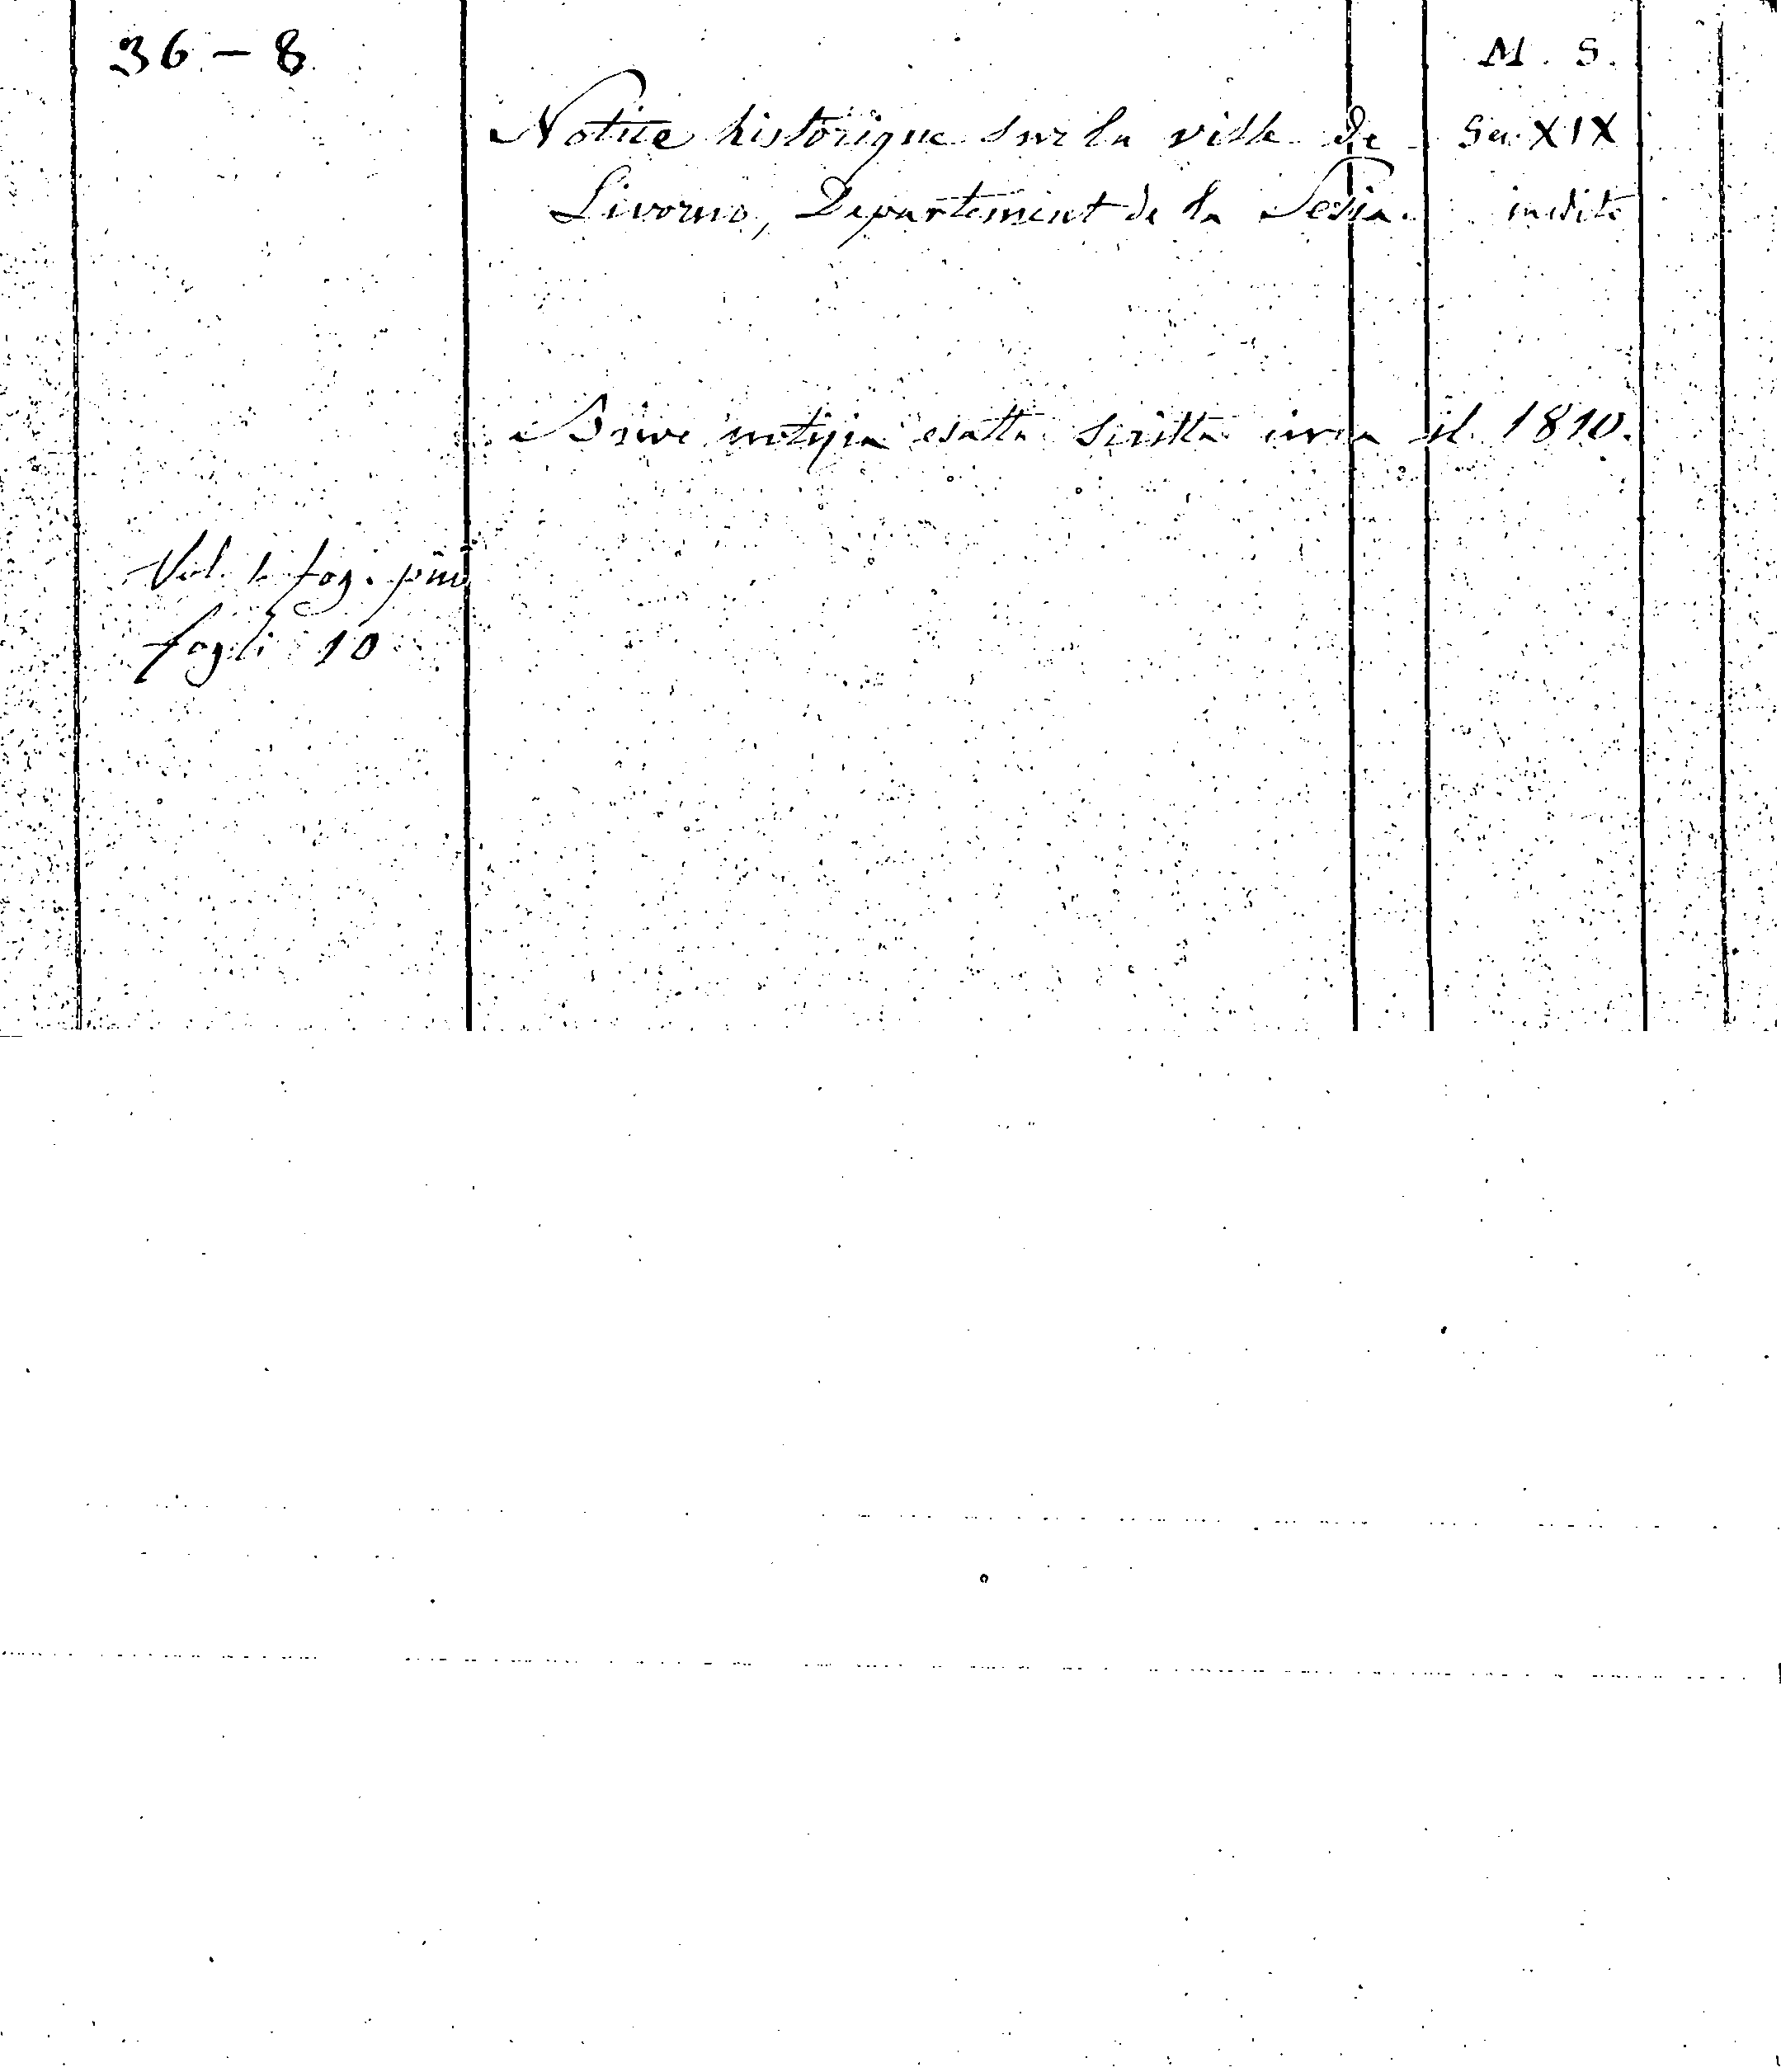 36 - 8
M. S.
Notice historique sur la ville de
Sec. XIX
Livorno, Departement de la Sesia.
inedito
Breve notizia esatta scritta circa il 1810.
Vol. fog.
fogli 10